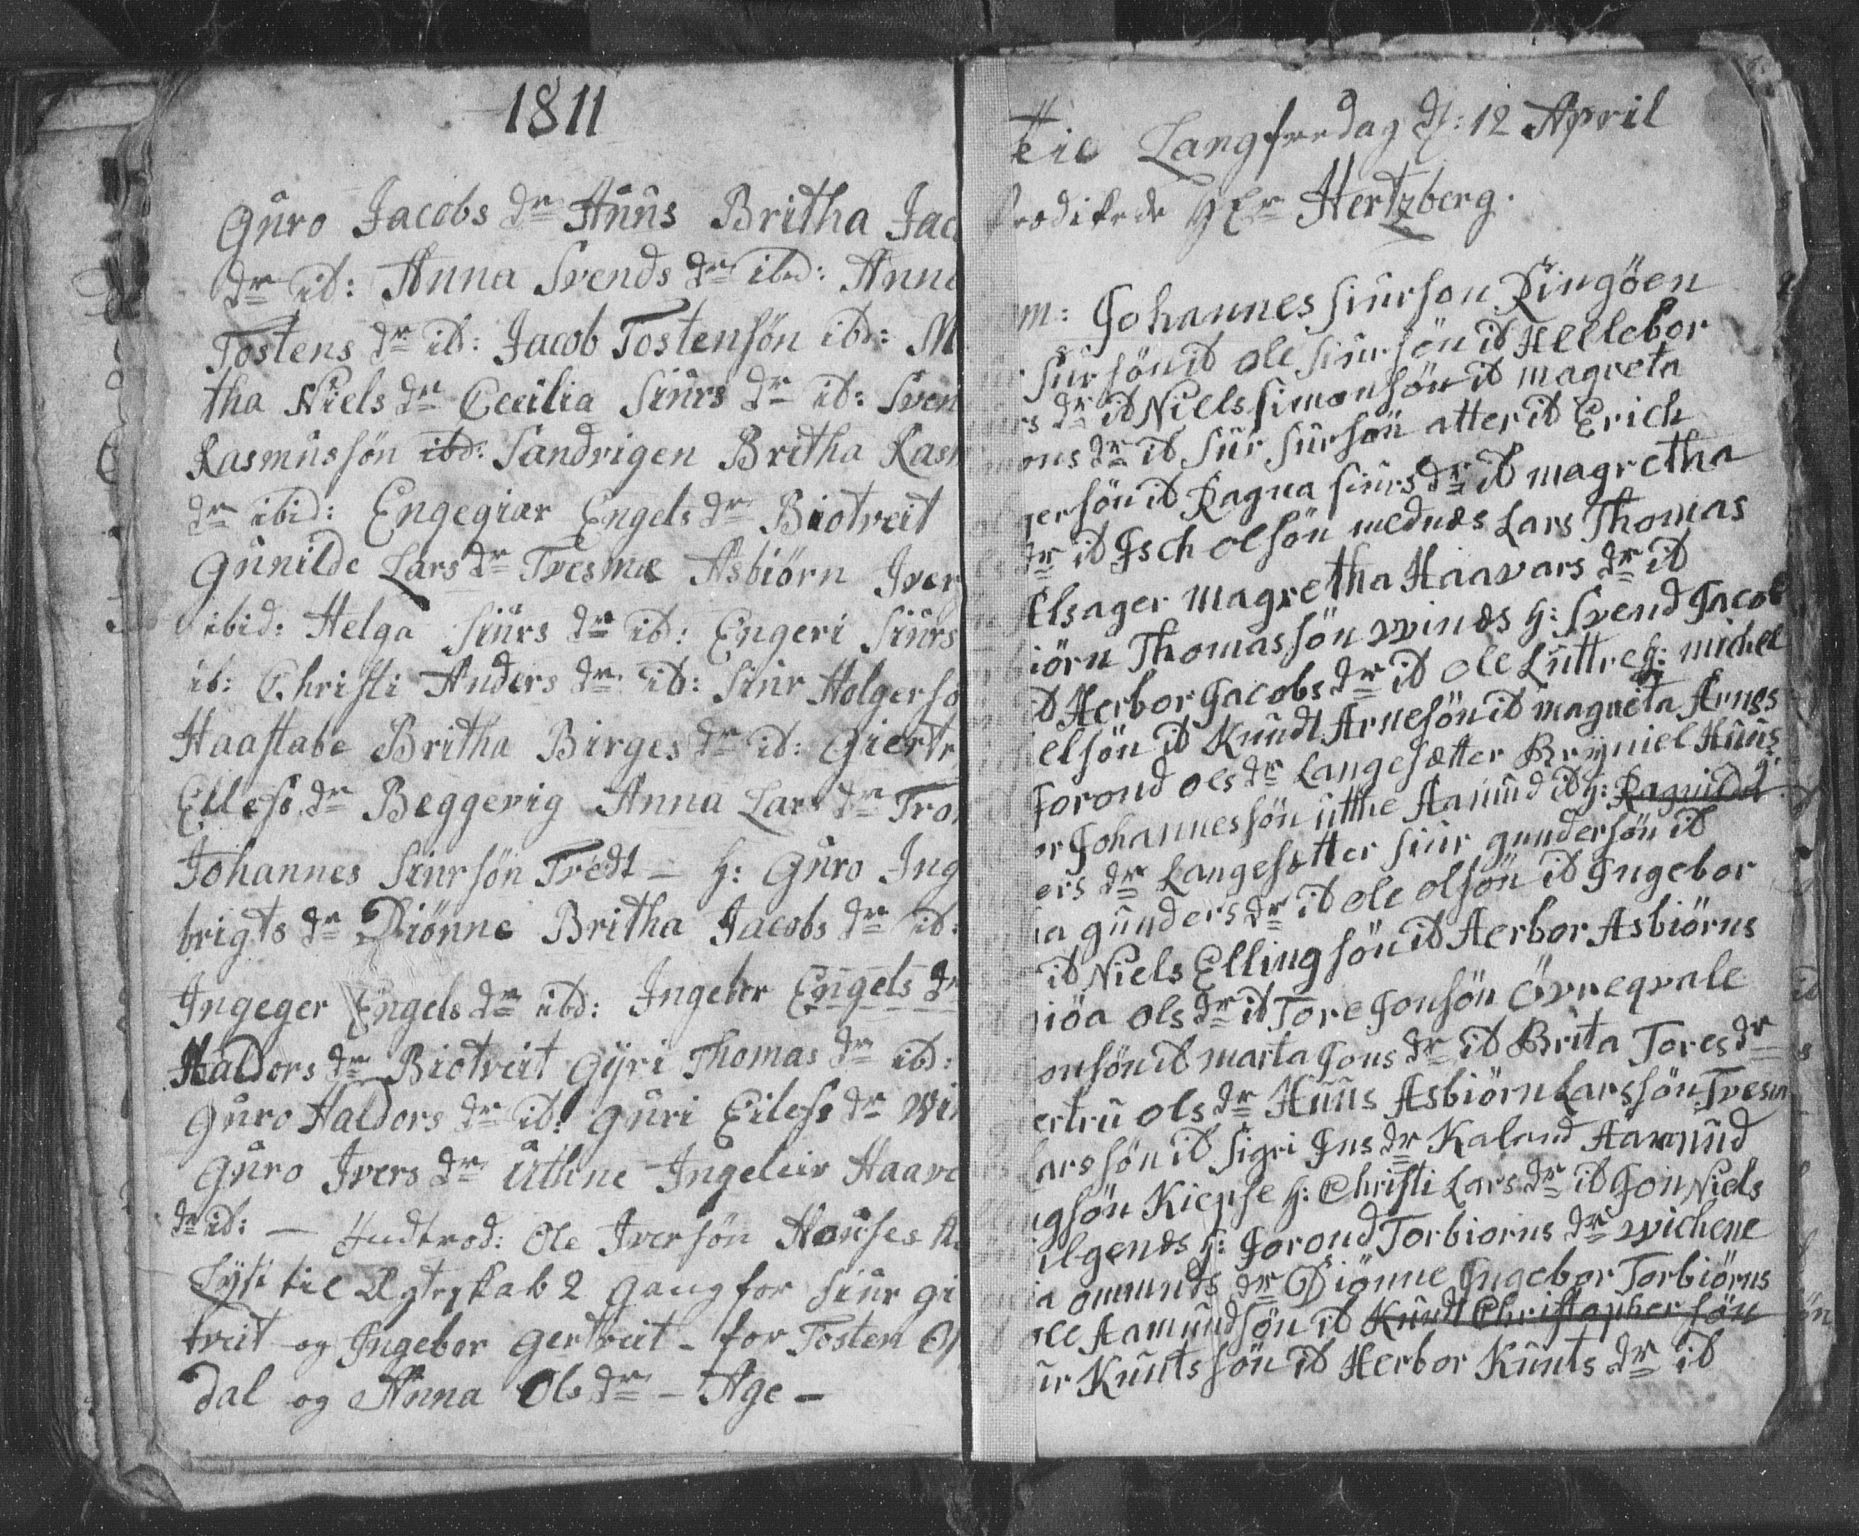 1811
Guro Jacobs dr Huus Britha Jac
dr ib: Anna Svends dr ibd: Anna
Tostens dr ib: Jacob Tostensön ibd: M
tha Niels dr Cecilia Siurs dr ib: Sven
Rasmussön ibd: Sandvigen Britha Rasm
dr ibid: Engegiær Engels dr Biotveit
Gunilde Lars dr Tvesme Asbiörn Iver
ibid: Helga Siurs dr ib: Engeri Siurs
ib: Christi Anders dr ib: Siur Holgerso
Haastabe Britha Birges dr ib: Giertr
Ellefs dr Beggevig Anna Lars dr Tro
Johannes Siursön Trædt – H: Guro Ing
brigts dr Diönne Britha Jacobs dr ib:
Ingeger Engels dr ibd: Ingebor Engels dr
Haldors dr Biotveit Gyri Thomas dr ibd:
Guro Haldors dr ib: Guri Eilefs dr Wi
Guro Ivers dr Uthne Ingeleiv Haav
dr ib: – Ole Iversön Houses
Lyst til Ægteskab 2 gang for Siur gi
treit og Ingebor gertveit – for Tosten
dal og Anna Ols dr – Age –
Langfredag d: 12 April
Prædikede HEr Hertzberg.
m: Johannes Siurson Ringöen
Sursön ib Ole Siursön ib Herbor
rs dr ib Niels Simonsön ib Magreta
mons dr ib Sur Sursön atter ib Erich
gersön ib Ragna Siurs dr ib Magretha
dr ib Isch Olsön Mednæs Lars Thomas
Elsager Magretha Haavars dr ib
iörn Thomassön Windes H: Svend Jacob
ib Herbor Jacobs dr ib Ole Luttre H: Michel
elsön ib Knudt Arnesön ib Magreta Arnes
Jorond Ols dr Langesætter Bryniel Huus
or Johannessön Utthe Aamund ib H: Ragnild
ers dr Langesötter Siur Gundersön ib
a Gunders dr ib Ole Olsön ib Ingebor
ib Niels Ellingsön ib Herbor Asbiörns
iöa Ols dr ib Tore Jonsön Övreqvale
onsön ib Marta Jons dr ib Brita Tores dr
ertru Ols dr Huus Asbiörn Larssön Tvesm
arssön ib Sigri Jns dr Kaland Aamund
ngsön Kiepse H: Christi Lars dr ib Jon Niels
ilgenes H: Jorond Torbiorns dr Wichene
a Ommunts dr Diönne Ingebor Torbiörns
ole Aamundsön ib Knudt Christaphersön
ur Knutssön ib Herbor Knuts dr ib